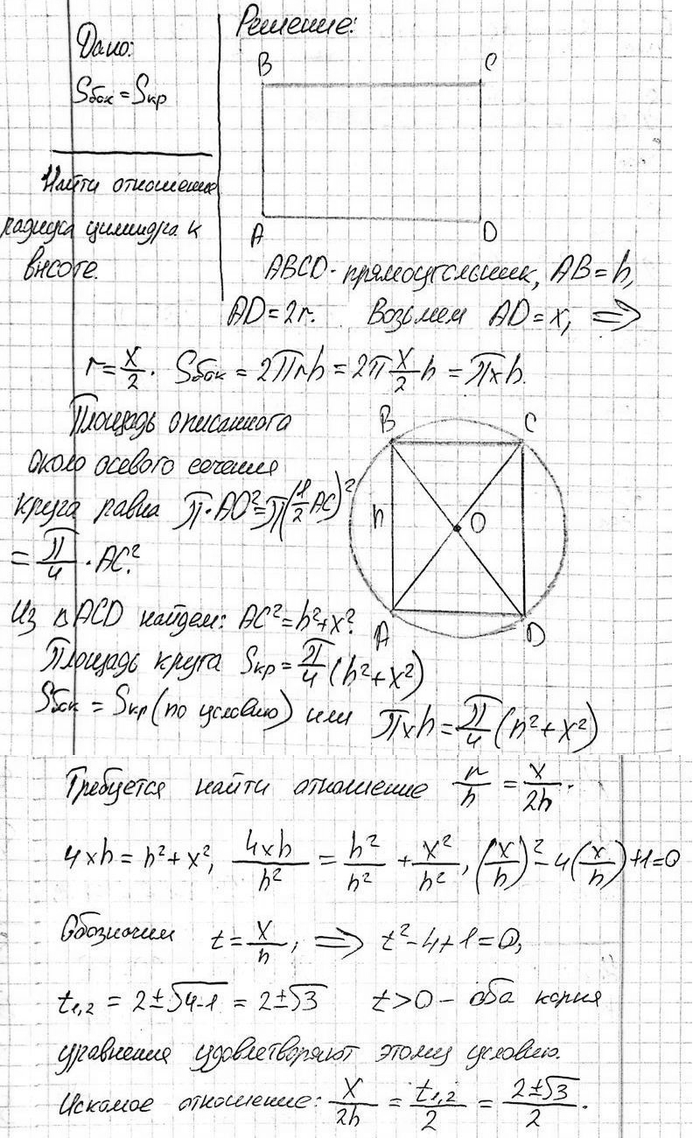 Дано:
Sбок = Sкр
Найти отношение
радиуса цилиндра к
высоте.
Решение:
B C
A D
ABCD - прямоугольник, AB = h,
AD = 2r. Возьмем AD = x, ⇒
r = x/2. Sбок = 2πrh = 2π x/2 h = πxh.
Площадь описанного
около осевого сечения
круга равна π·AO² = π(1/2 AC)²
= π/4 · AC².
B C
h O
A D
Из △ACD найдем: AC² = h² + x².
Площадь круга Sкр = π/4 (h² + x²)
Sбок = Sкр (по условию) или πxh = π/4 (h² + x²)
Требуется найти отношение r/h = x/2h.
4xh = h² + x², 4xh/h² = h²/h² + x²/h², (x/h)² - 4(x/h) + 1 = 0
Обозначим t = x/h, ⇒ t² - 4 + 1 = 0,
t1,2 = 2 ± √4-1 = 2 ± √3 t > 0 - оба корня
уравнения удовлетворяют этому условию.
Искомое отношение: x/2h = t1,2/2 = 2±√3/2.